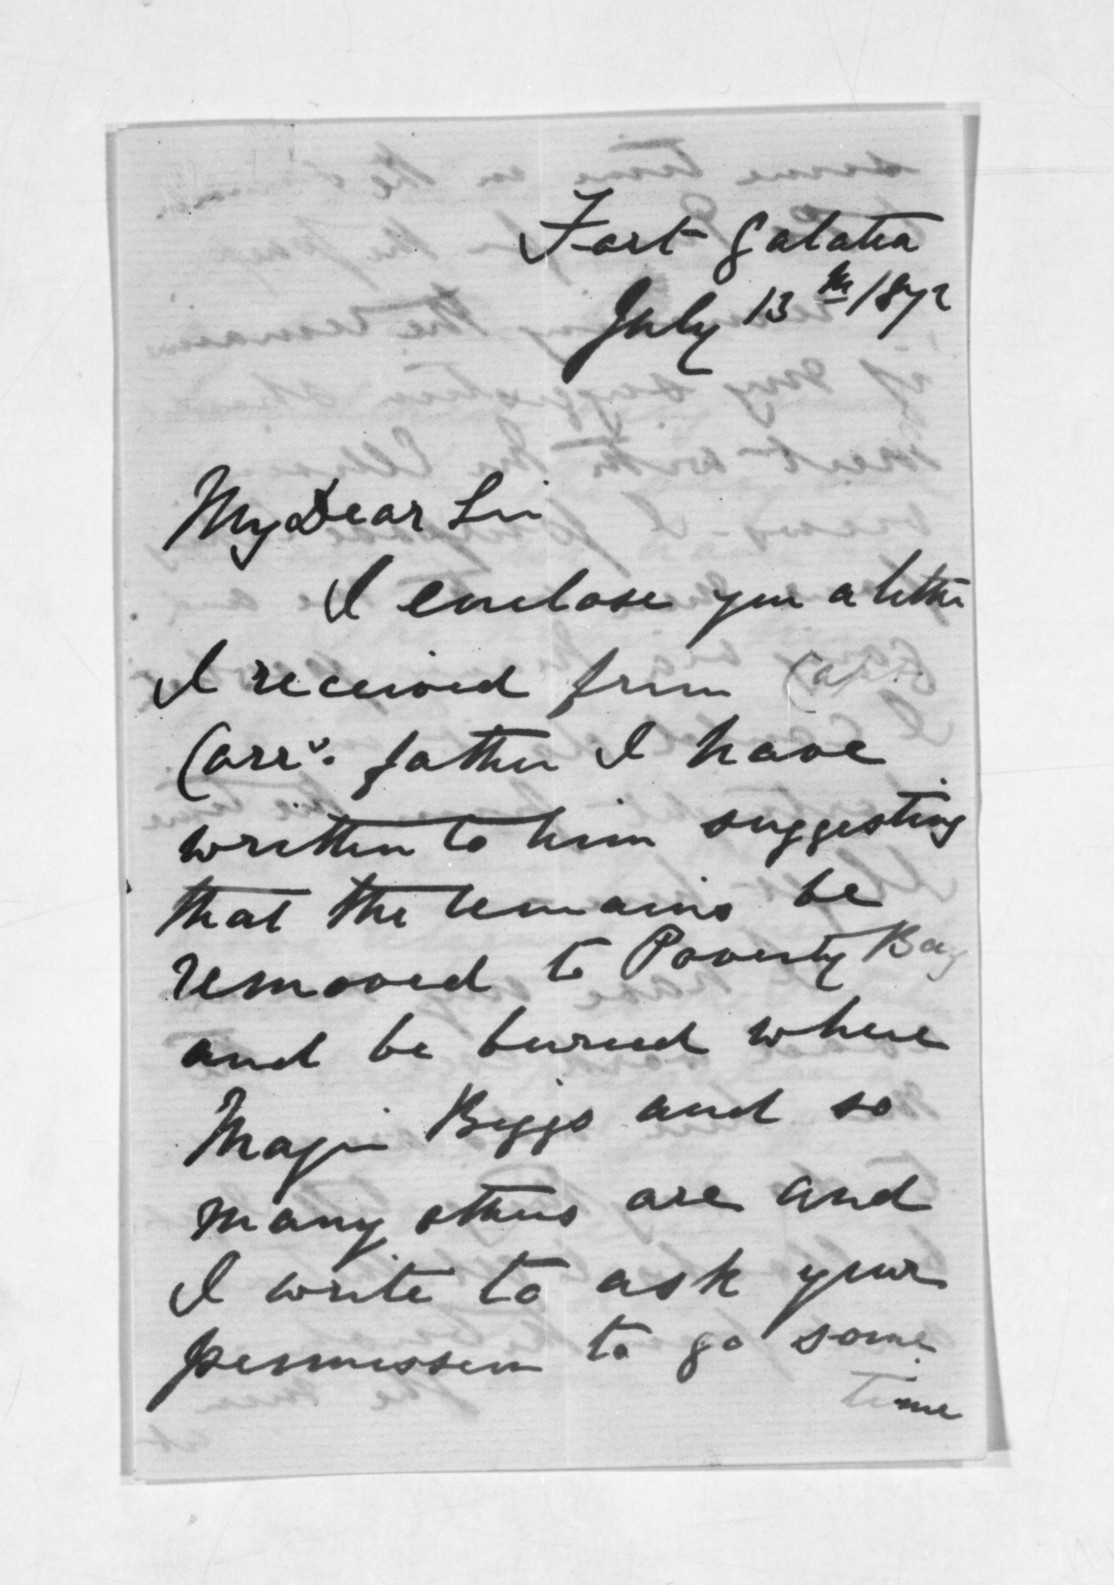 Fort Galatea
July 13th 1872
My Dear Sir
I enclose you a letter
I received from Capt.
Carr's father I have
written to him suggesting
that the remains be
removed to Poverty Bay
and be buried where
Major Biggs and so
many others are and
I write to ask your
permission to go some
time